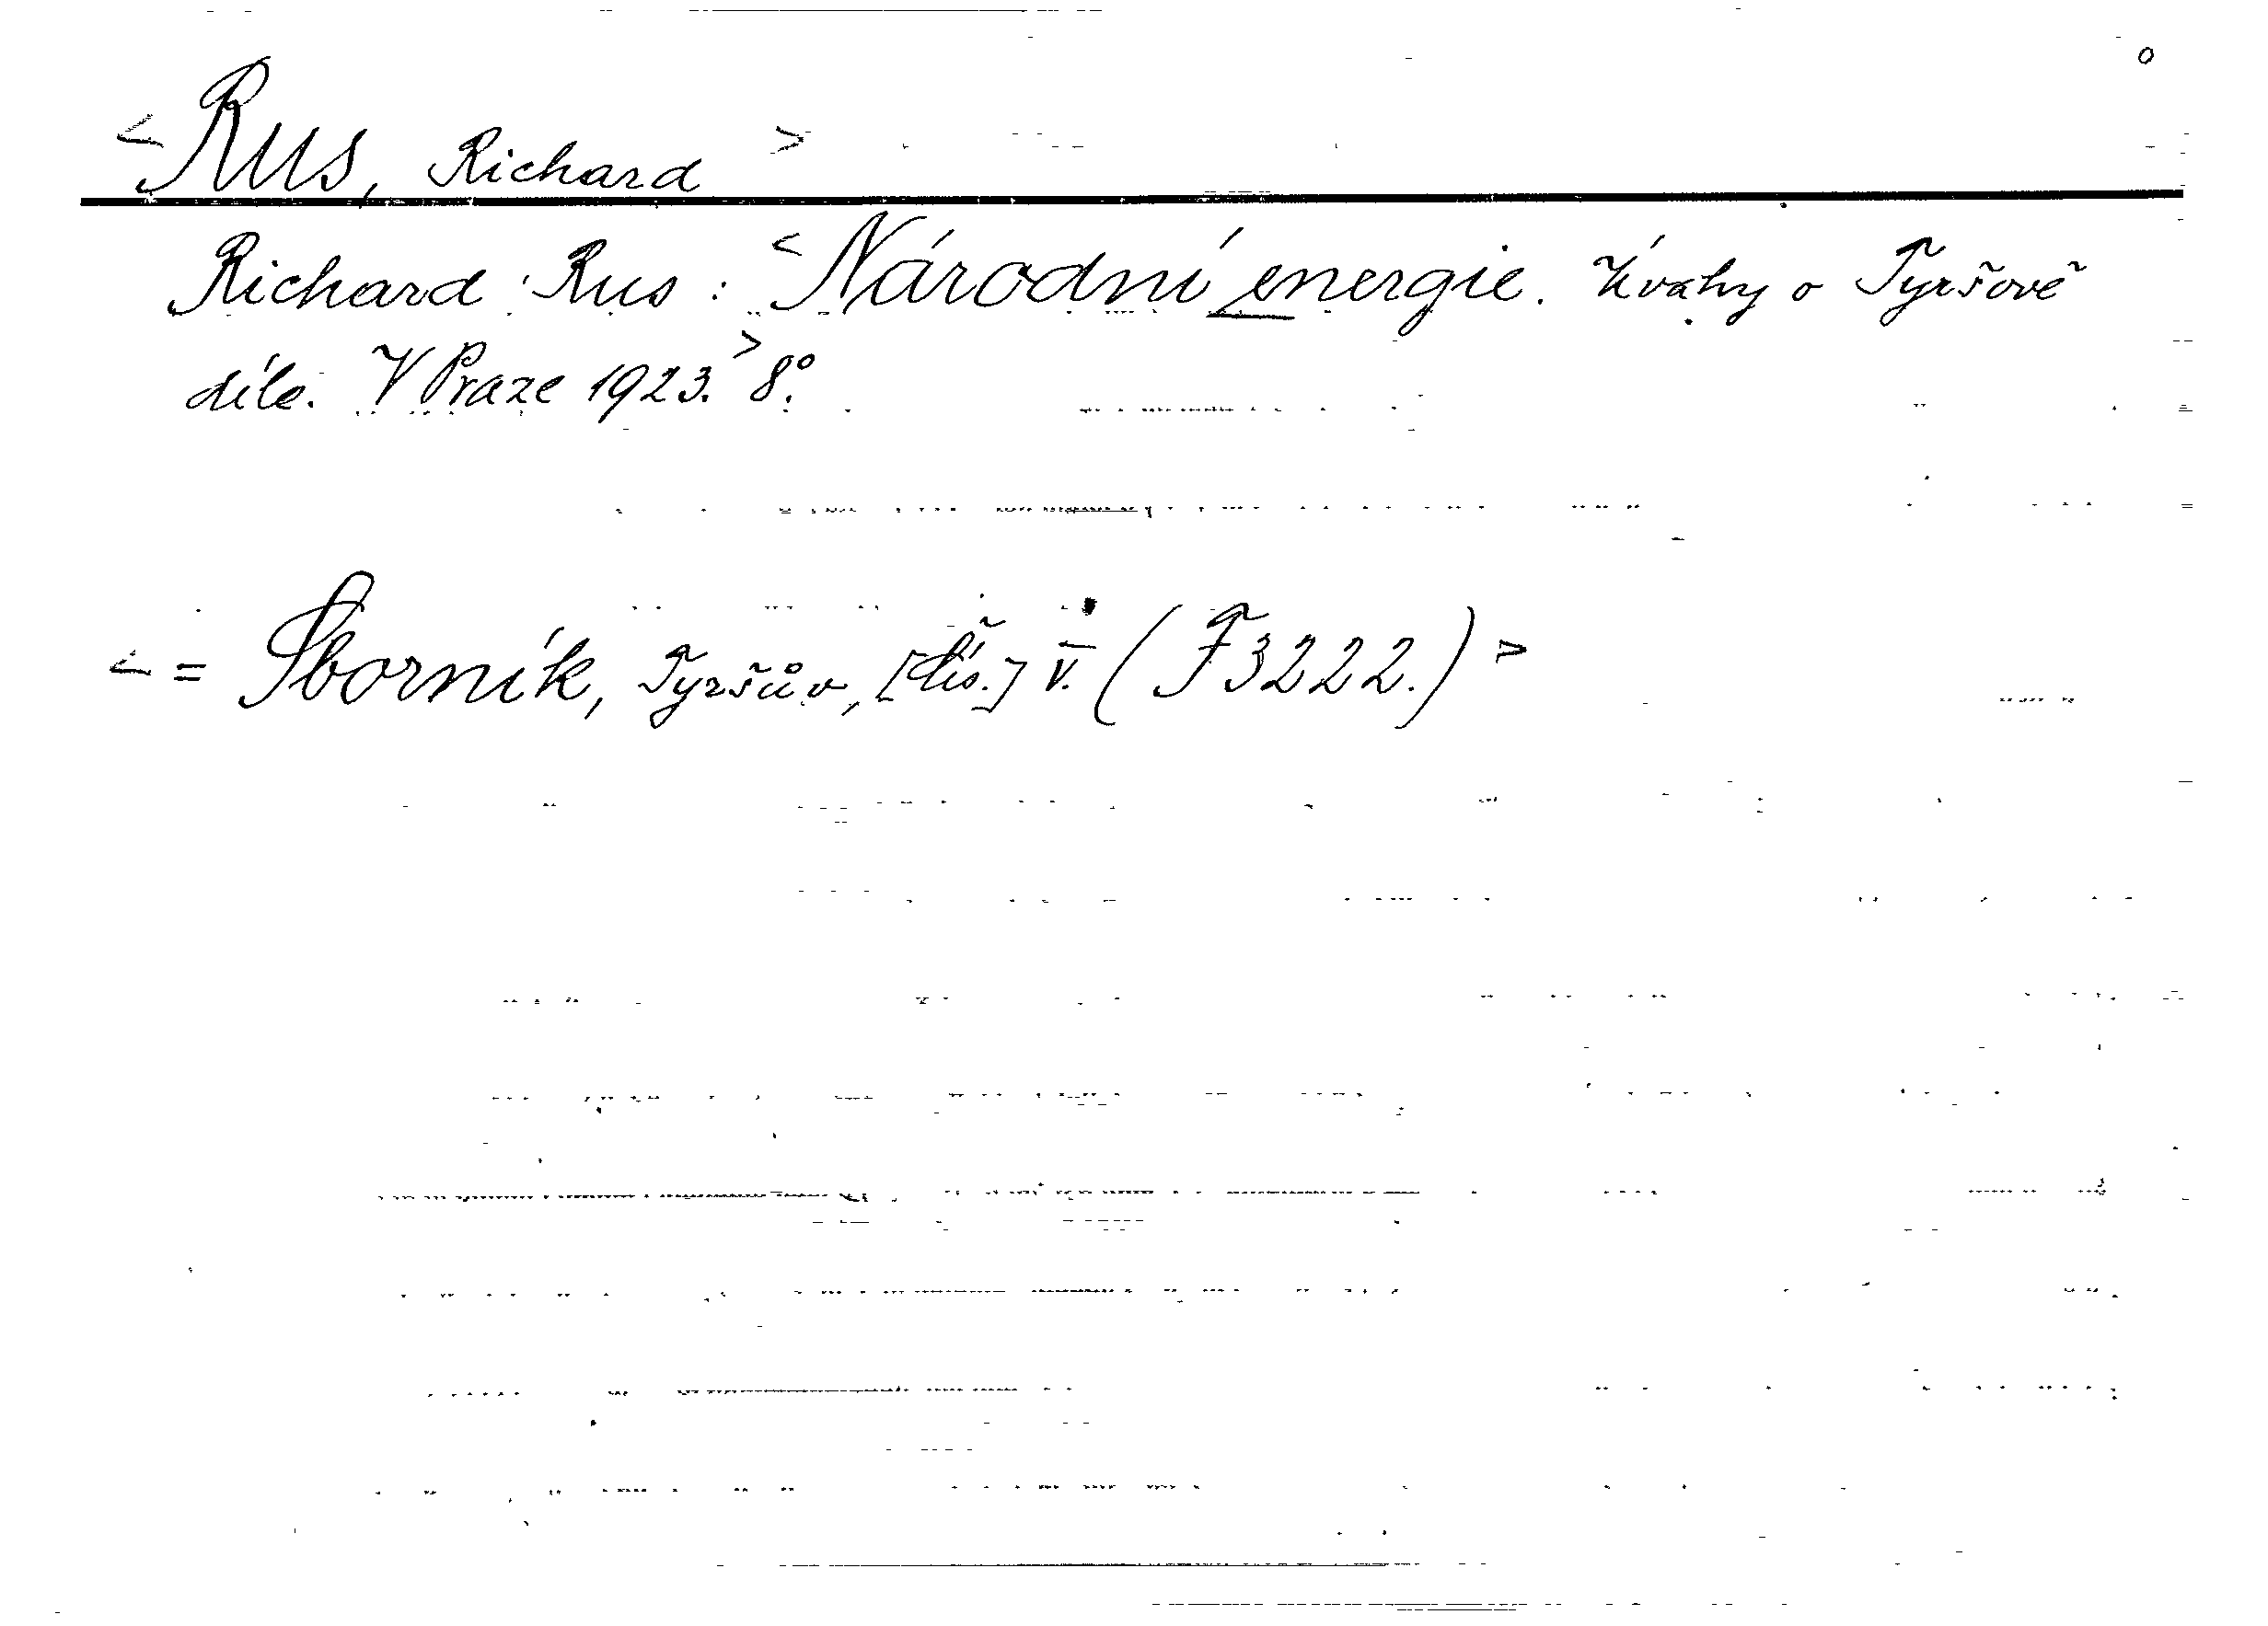 <Rus, Richard>
Richard Rus: <Národní energie. Úvahy o Tyršově
díle. V Praze 1923.> 8º.
<= Sborník, Tyršův, [čís.] V. (F3222.)>